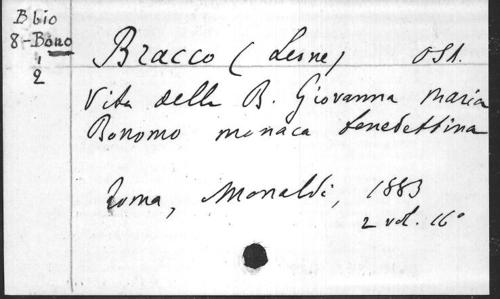 B bio
8-Bono
1
2
Bracco (Leone) OSB.
Vita della B. Giovanna Maria
Bonomo monaca benedettina
Roma, Monaldi, 1883
2 vol. 16°